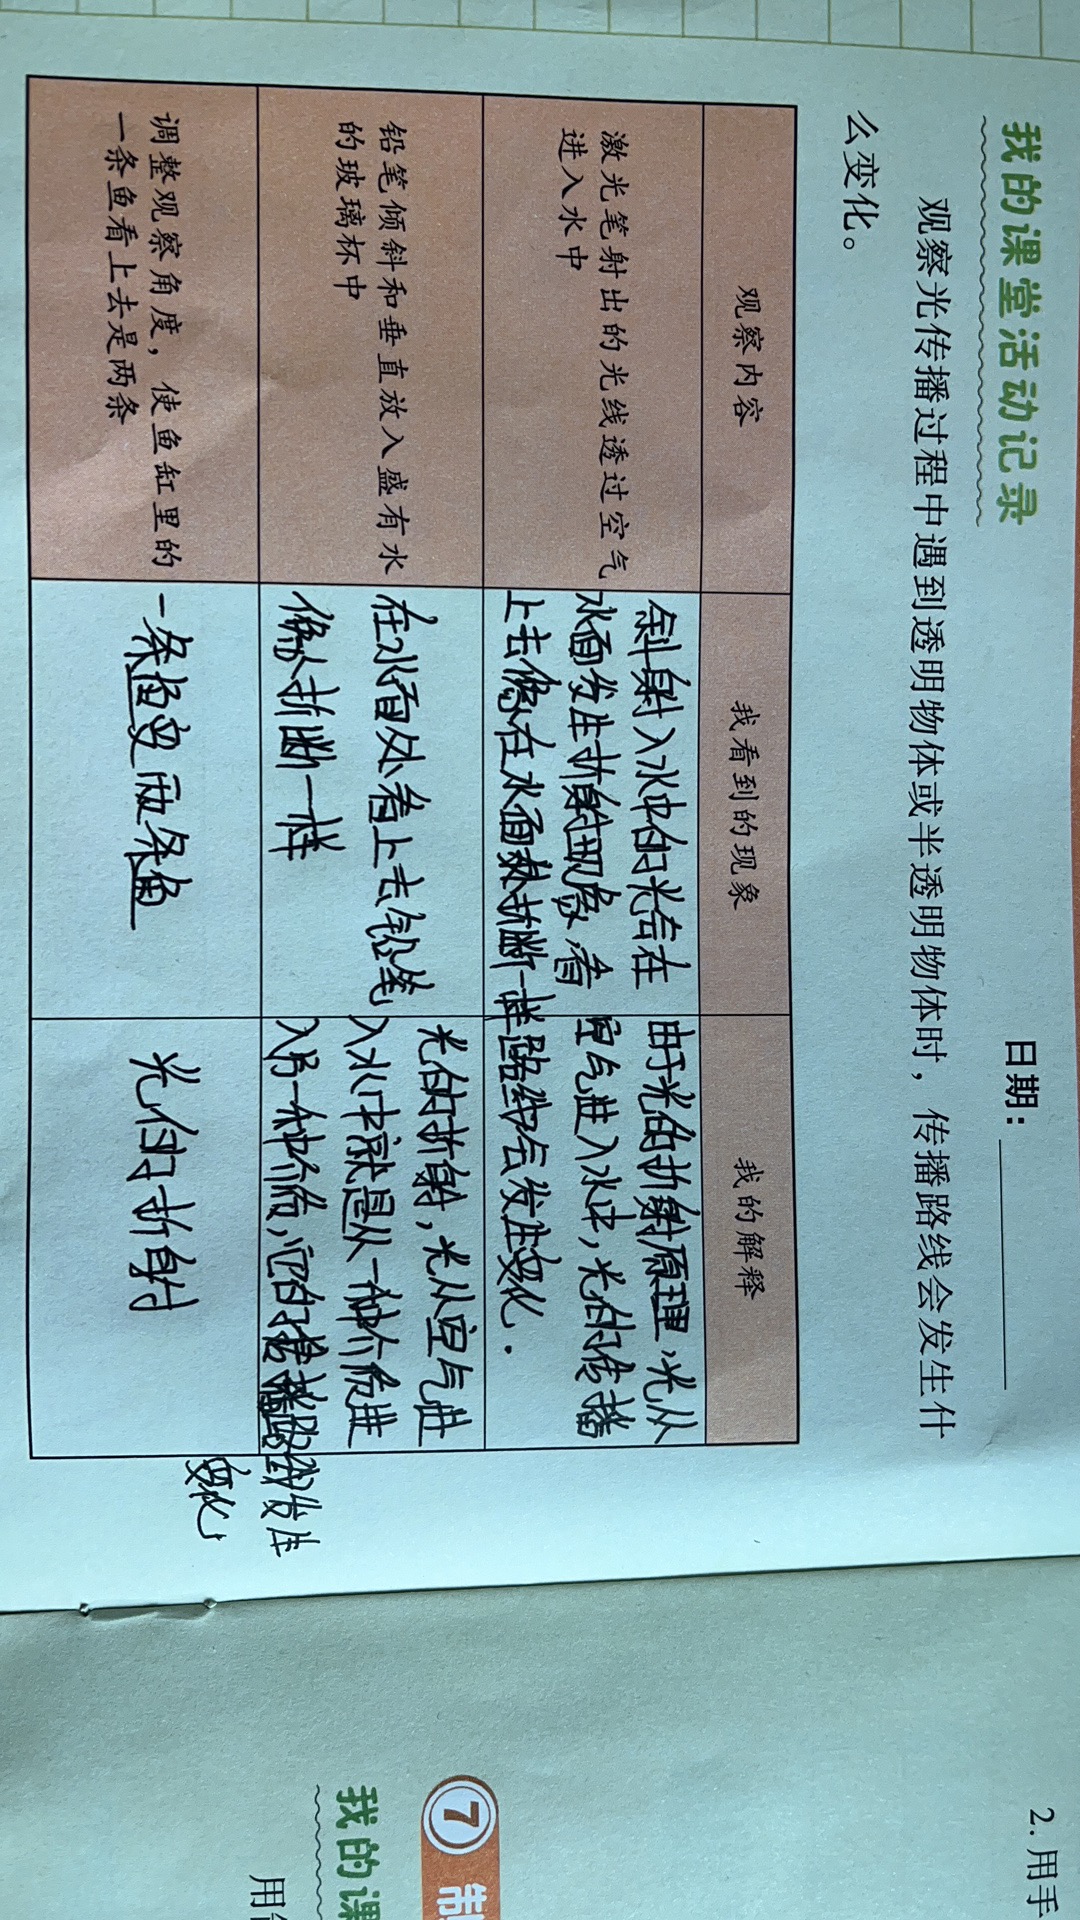 我的课堂活动记录
日期：
观察光传播过程中遇到透明物体或半透明物体时，传播路线会发生什
么变化。
观察内容
我看到的现象
我的解释
激光笔射出的光线透过空气
进入水中
斜射入水中的光会在
水面发生折射现象，看
上去像在水面被折断一样
由于光的折射原理，光从
空气进入水中，光的传播
路线会发生变化．
铅笔倾斜和垂直放入盛有水
的玻璃杯中
在水面处看上去铅笔
像折断一样
光的折射，光从空气进
入水中就是从一种介质进
入另一种介质，它的传播路线发生
变化
调整观察角度，使鱼缸里的
一条鱼看上去是两条
一条鱼变两条鱼
光的折射
2. 用手
7
制
我的课
用